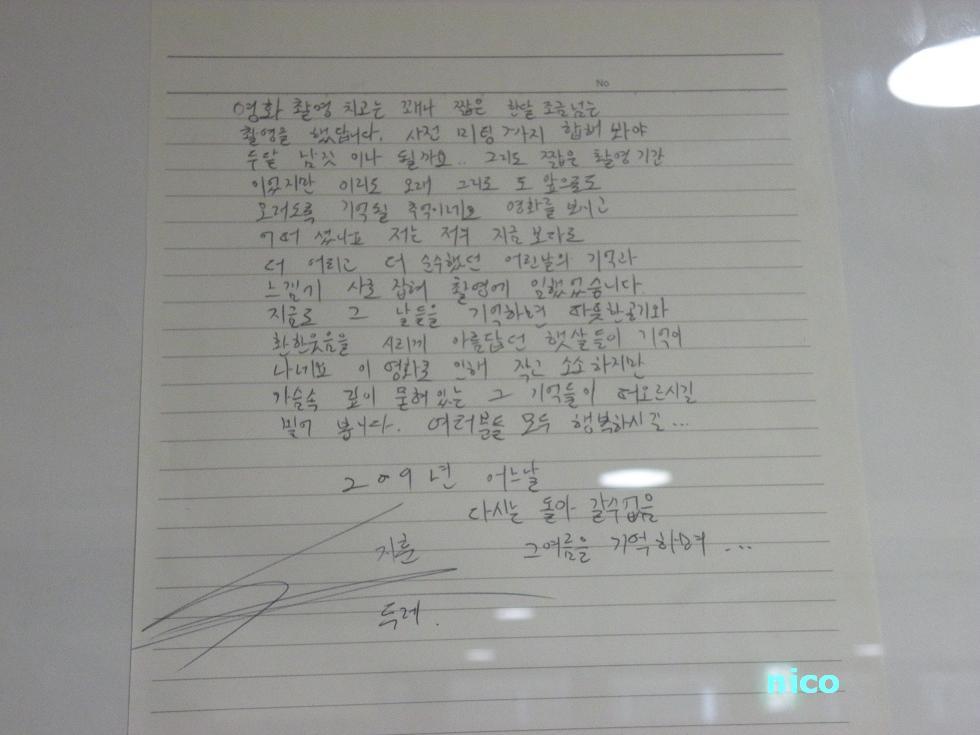 No
영화 촬영 치고는 꽤나 짧은 한달 조금넘는
촬영을 했답니다. 사전 미팅 까지 합해 봐야
두달 남짓 이나 될까요.. 그리도 짧은 촬영 기간
이었지만 이리도 오래 그리고 또 앞으로도
오래도록 기억될 추억이네요 영화를 보시고
어떠 셨나요 저는 저두 지금 보다도
더 어리고 더 순수했던 어린날의 기억과
느낌기 사로 잡혀 촬영에 임했었습니다.
지금도 그 날들을 기억하노면 따뜻한공기와
환한웃음을 시리게 아름답던 햇살들이 기억이
나네요 이 영화로 인해 작고 소소 하지만
가슴속 깊이 묻혀있는 그 기억들이 떠오르시길
빌어 봅니다. 여러분들 모두 행복하시길...
2009년 어느날
다시는 돌아 갈수없을
지훈 그여름을 기억하며 ...
두레.
nico